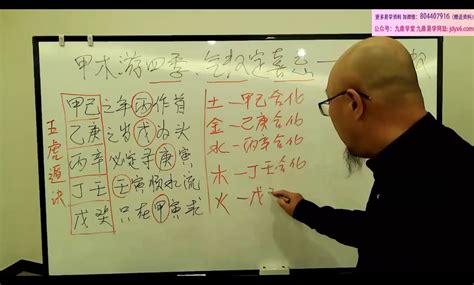 更多易学资料 加微信：804407916（赠送资料）
公众号：九鼎学堂 九鼎易学网站：jdyx6.com
甲木游四季、气韵定喜忌一
五虎遁诀
甲己之年丙作首
乙庚之岁戊为头
丙辛必定寻庚寅
丁壬壬寅顺水流
戊癸只在甲寅求
土一甲己合化
金一乙庚合化
水一丙辛合化
木一丁壬合化
火一戊